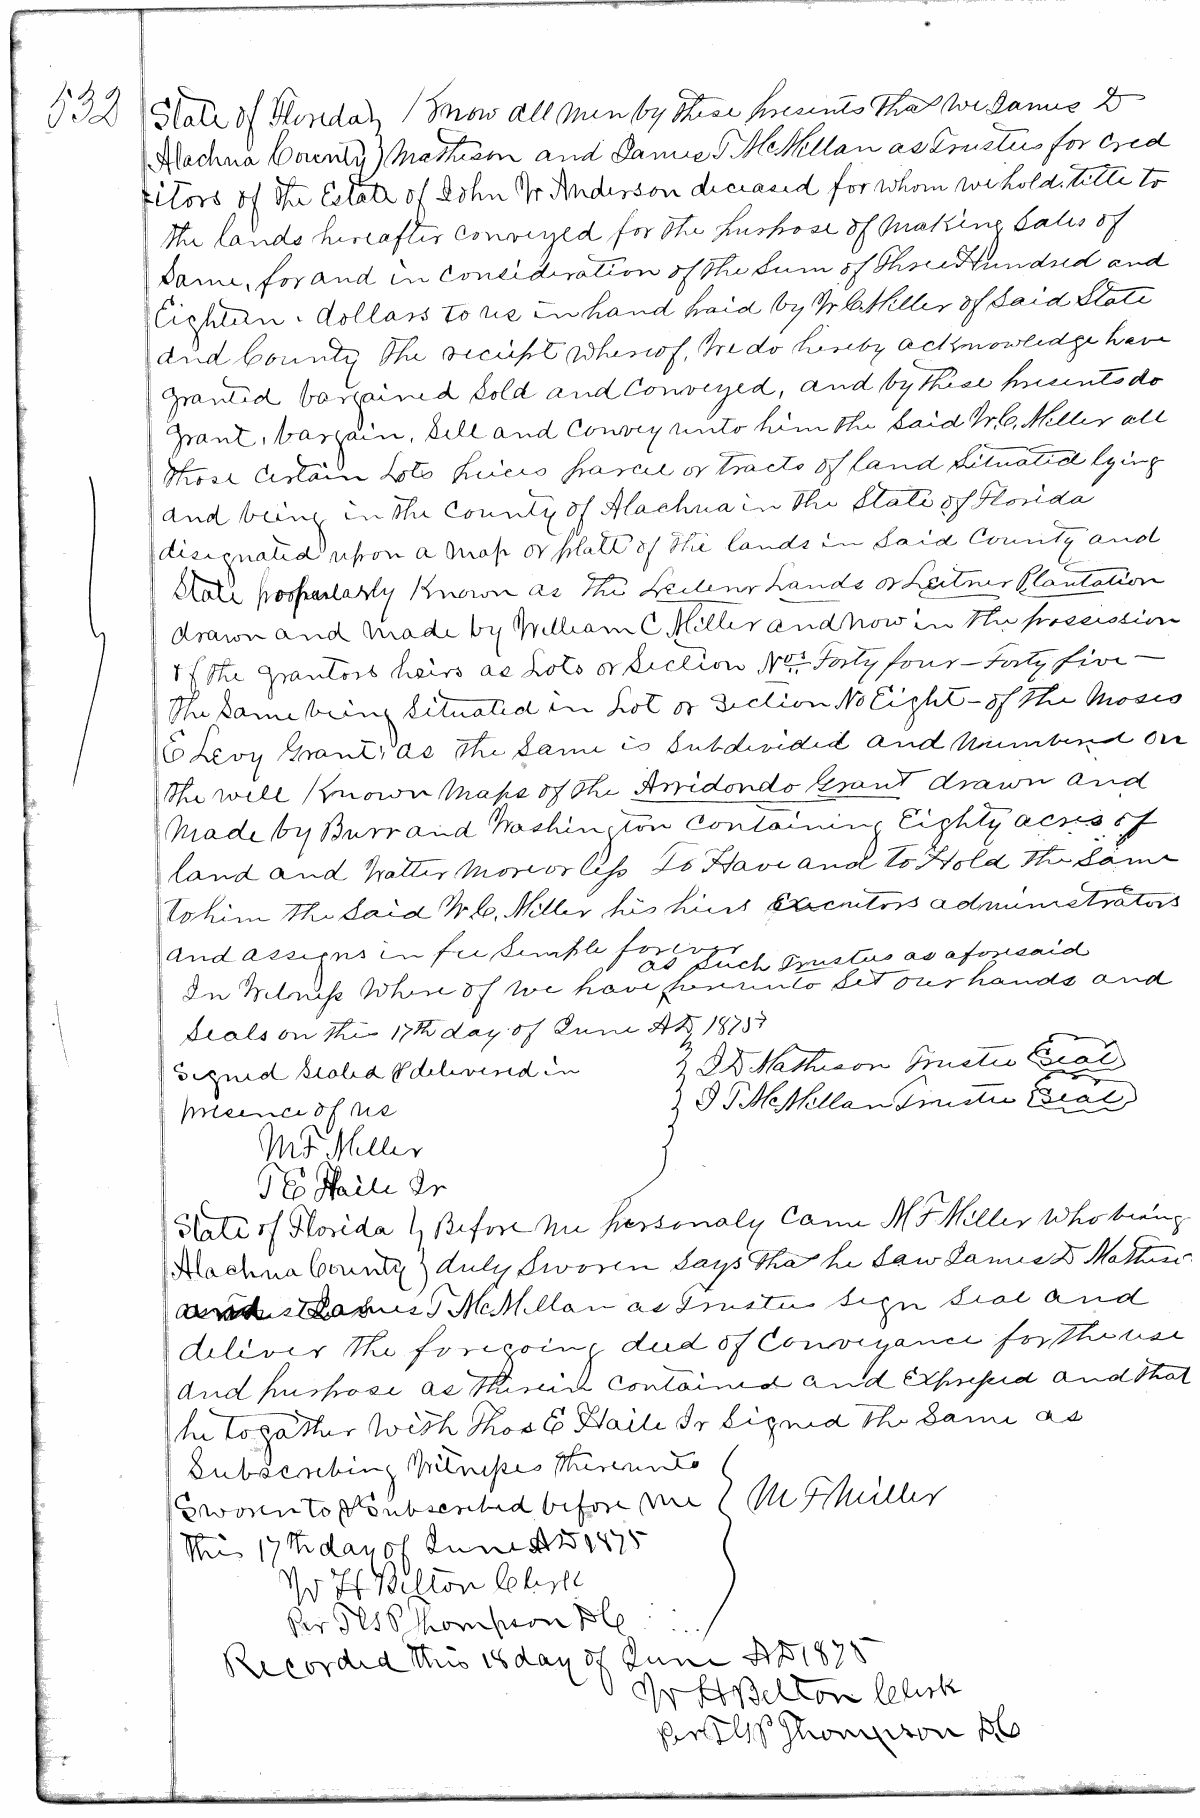 532
State of Florida } Know all men by these presents that we James D
Alachua County } Matheson and James T McMillan as Trustees for cred
itors of the Estate of John W Anderson deceased for whom we hold title to
the lands hereafter conveyed for the purpose of making sales of
Same, for and in consideration of the sum of Three Hundred and
Eighteen dollars to us in hand paid by W.C. Miller of said State
and County the reciept whereof, We do hereby acknowledge have
granted bargained Sold and Conveyed, and by these presents do
grant, bargain, Sell and Convey unto him the said W.C. Miller all
those certain Lots pieces parcel or tracts of land situated lying
and being in the County of Alachua in the State of Florida
designated upon a map or platt of the lands in said County and
State popularly known as the Lands or Leitner Plantation
drawn and made by William C Miller and now in the possession
of the grantors heirs as Lots or Section Nos Forty four – Forty five –
the same being situated in Lot or Section No Eight – of the Moses
E Levy Grant, as the same is subdivided and numbered on
the well Known Maps of the Arridondo Grant drawn and
made by Burr and Washington containing Eighty acres of
land and Watter more or less To Have and to Hold the same
to him the said W.C. Miller his hiers Executors administrators
and assigns in fee simple forever
as such Trustees as aforesaid
In Witness Where of we have hereunto set our hands and
seals on this 17th day of June AD, 1875
Signed Sealed & delivered in } J D Matheson Trustee Seal
presence of us } J T McMillan Trustee Seal
M F Miller
T E Haile Jr
State of Florida } Before me personaly came M F Miller who being
Alachua County } duly Sworen says that he saw James D Mathesi-
and James T McMillan as Trustes sign seal and
deliver the foregoing deed of Conveyance for the use
and purpose as therein contained and Expressed and that
he togather with Thos E Haile Jr Signed the same as
Subscribing Witnesses thereunto
Sworen to & Subscribed before me } M F Miller
this 17th day of June AD 1875
W H Belton Clerk
Per Thompson DC
Recorded this 18 day of June AD 1875
W H Belton Clerk
Per Thompson DC